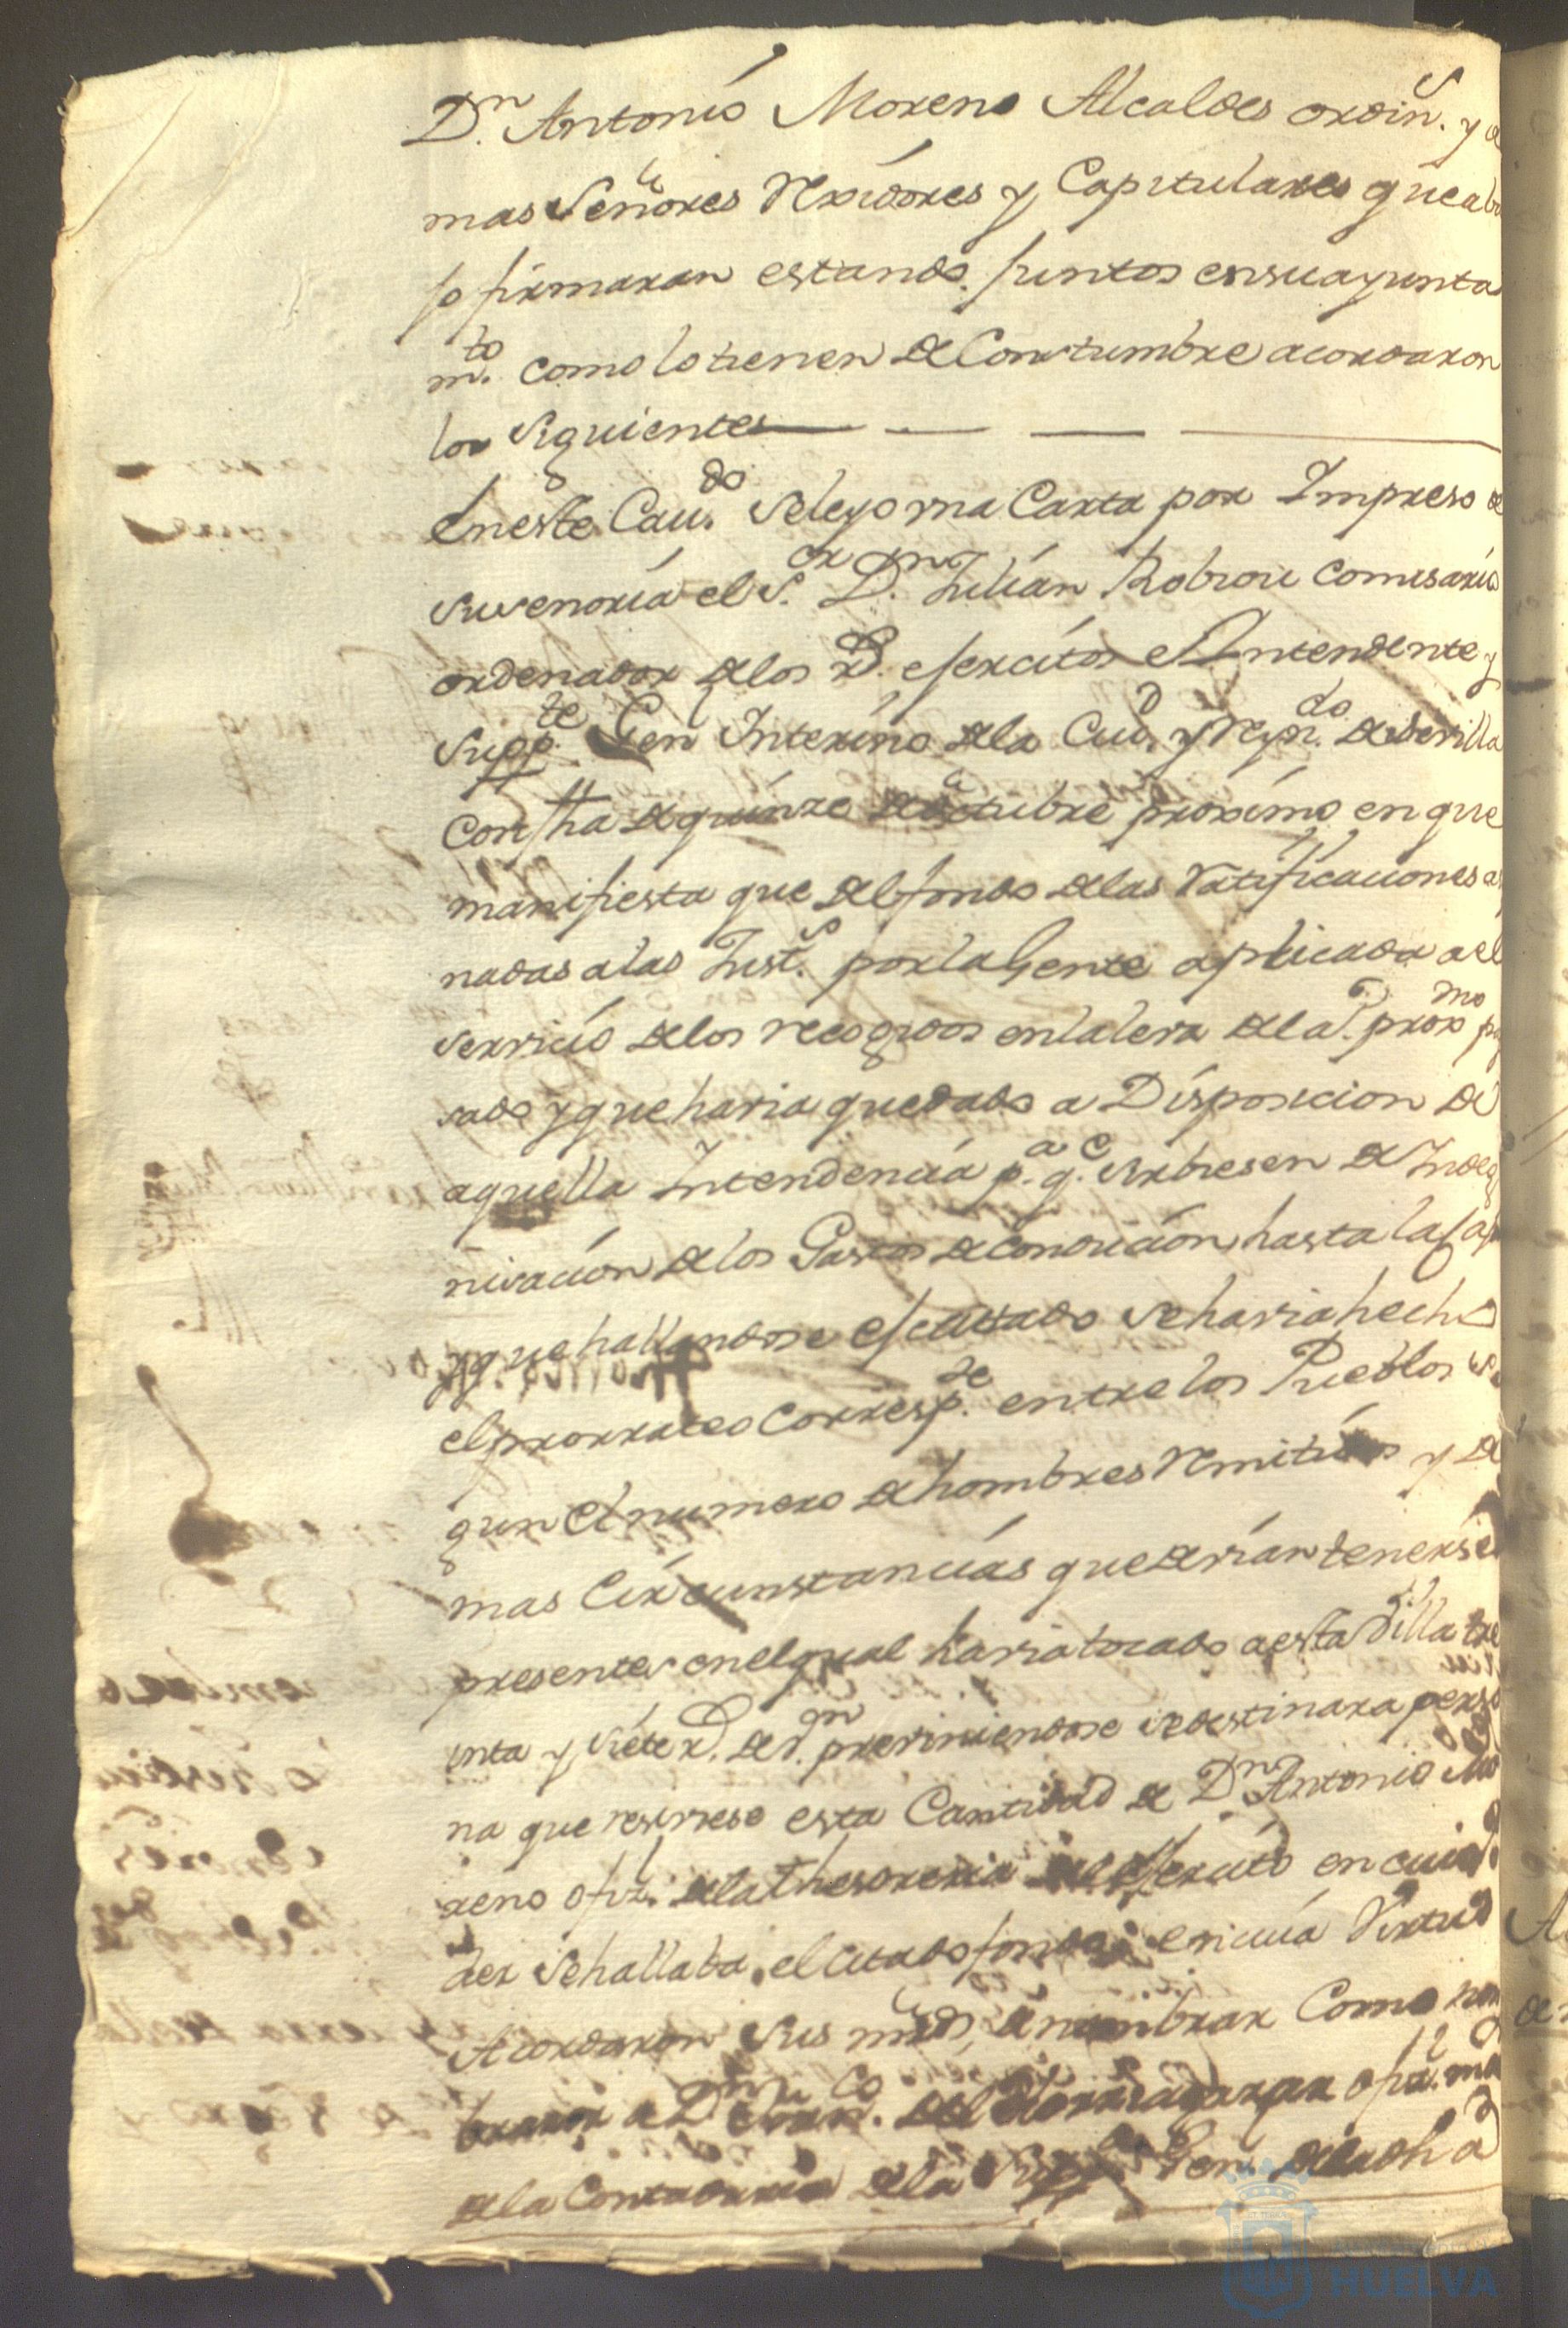 Dn. Antonio Moreno Alcaldes ordins. y de
mas Señores Rexidores y Capitulares que aba
jo firmaran estando juntos en su ayunta
mto. como lo tienen de Constumbre acordaron
los siguientes
En este Cavdo. se leyo vna Carta por Impreso de
su senoria el Sor. Dn. Julián Robiou Comisario
ordenador de los Rs. ejercitos e Intendente y
Suppte. Gen Interino de la Ciud. y reyndo. de Sevilla
con fha de quinze de octubre proximo en que
manifiesta que del fondo de las Ratificaciones as
nadas a las Justs. por la Gente aplicada a el
servicio de los recogidos en la leva de la P. proxmo pa
sado y que havia quedado a Disposicion de
aquella Intendencia pa. qe. sirbiesen de Indeg
nisacion de los Gastos de Conducion hasta la Cap
y que hallandose ejecutado se havia hecho
el prorrateo Correspte. entre los Pueblos se
gun el numero de hombres Remitidos y de
mas Circunstancias que devian tenerse
presentes en el qual havia tocado a esta Villa tre
inta y siete rs. de vn. previniendose se destinara perso
na que resiviese esta Cantidad de Dn. Antonio Mo
reno ofizl. de la thesoreria del Ejercito en cuio po
der se hallaba el citado fondo en cuia Virtud
Acordaron sus mrds, de nombrar Como nom
braron a Dn Franco. ofizl. ma
de la Contaduria de la Suppa. Gen. de la dha
HUELVA